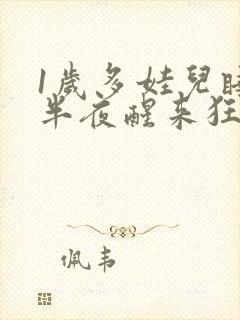 1歲多娃兒睡
半夜醒来狂
佩韦